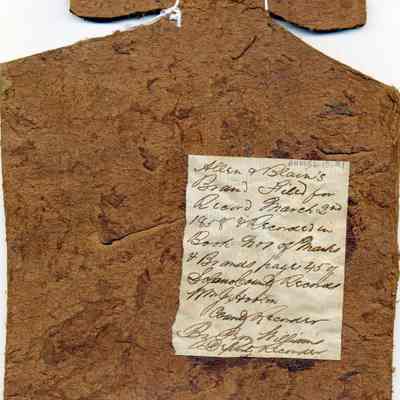 Allen & Blain's
Brand Filed for
Record March 2nd
1858 & Recorded in
Book No 1 of Marks
& Brands page 45 of
Solano County Records
County Recorder
By Williams
Recorder